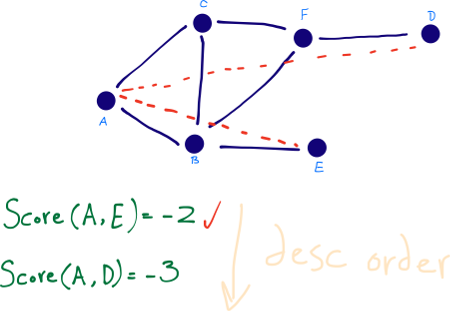 C
F
D
A
B
E
Score(A,E)=-2 ✓
Score(A,D)=-3
desc order